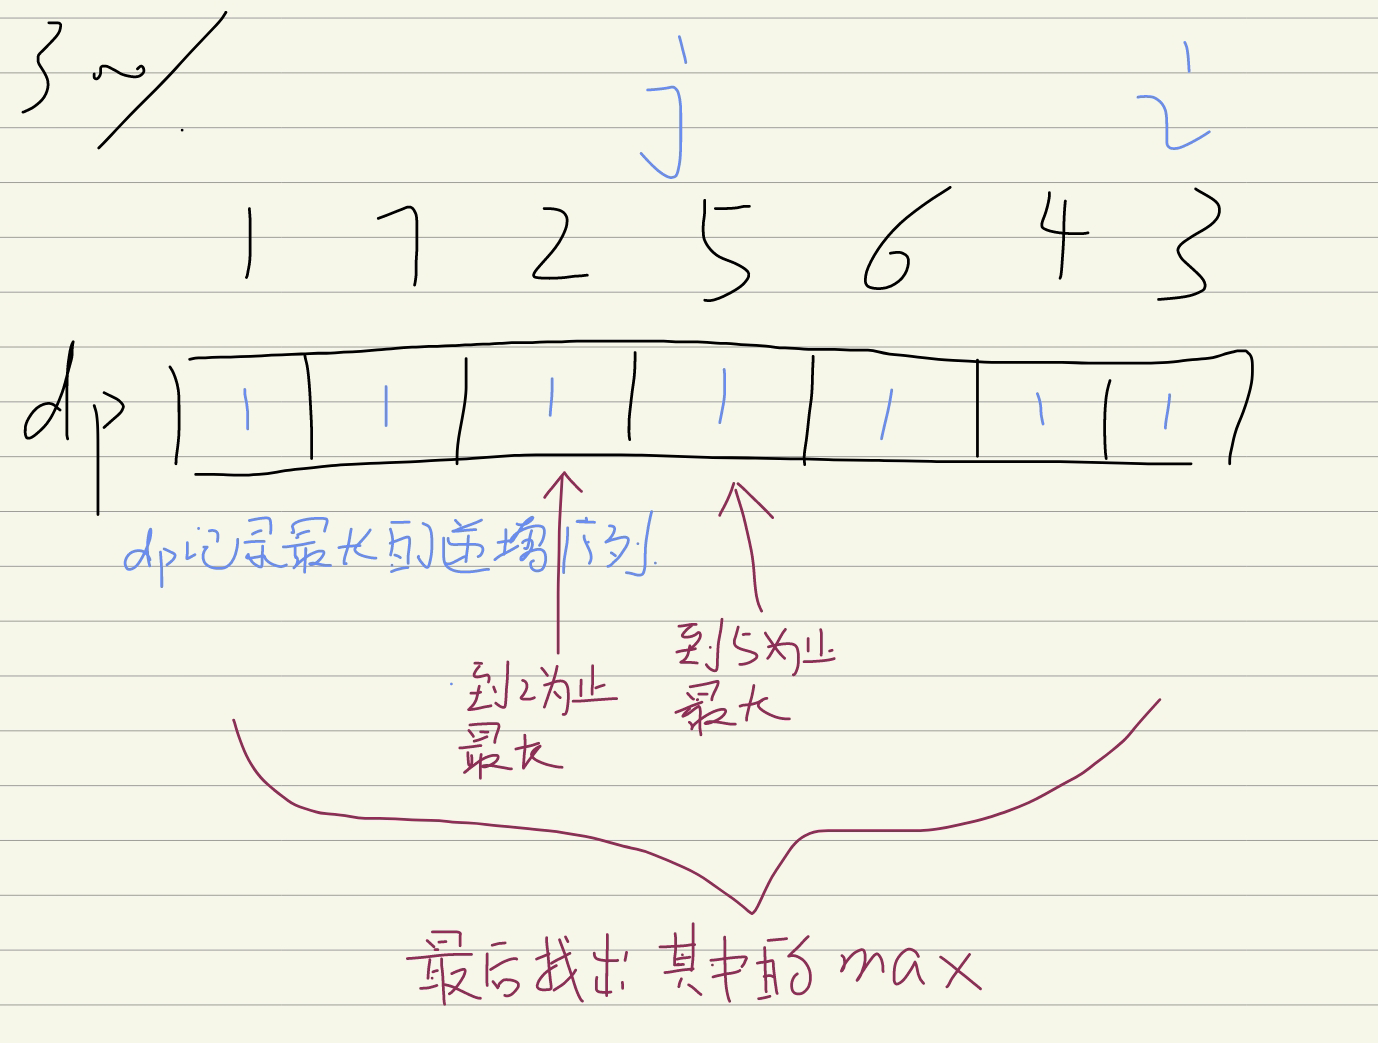 300
j i
1 7 2 5 6 4 3
dp 1 1 1 1 1 1 1
dp记录最长的递增序列.
到2为止
最长
到5为止
最长
最后找出其中的max